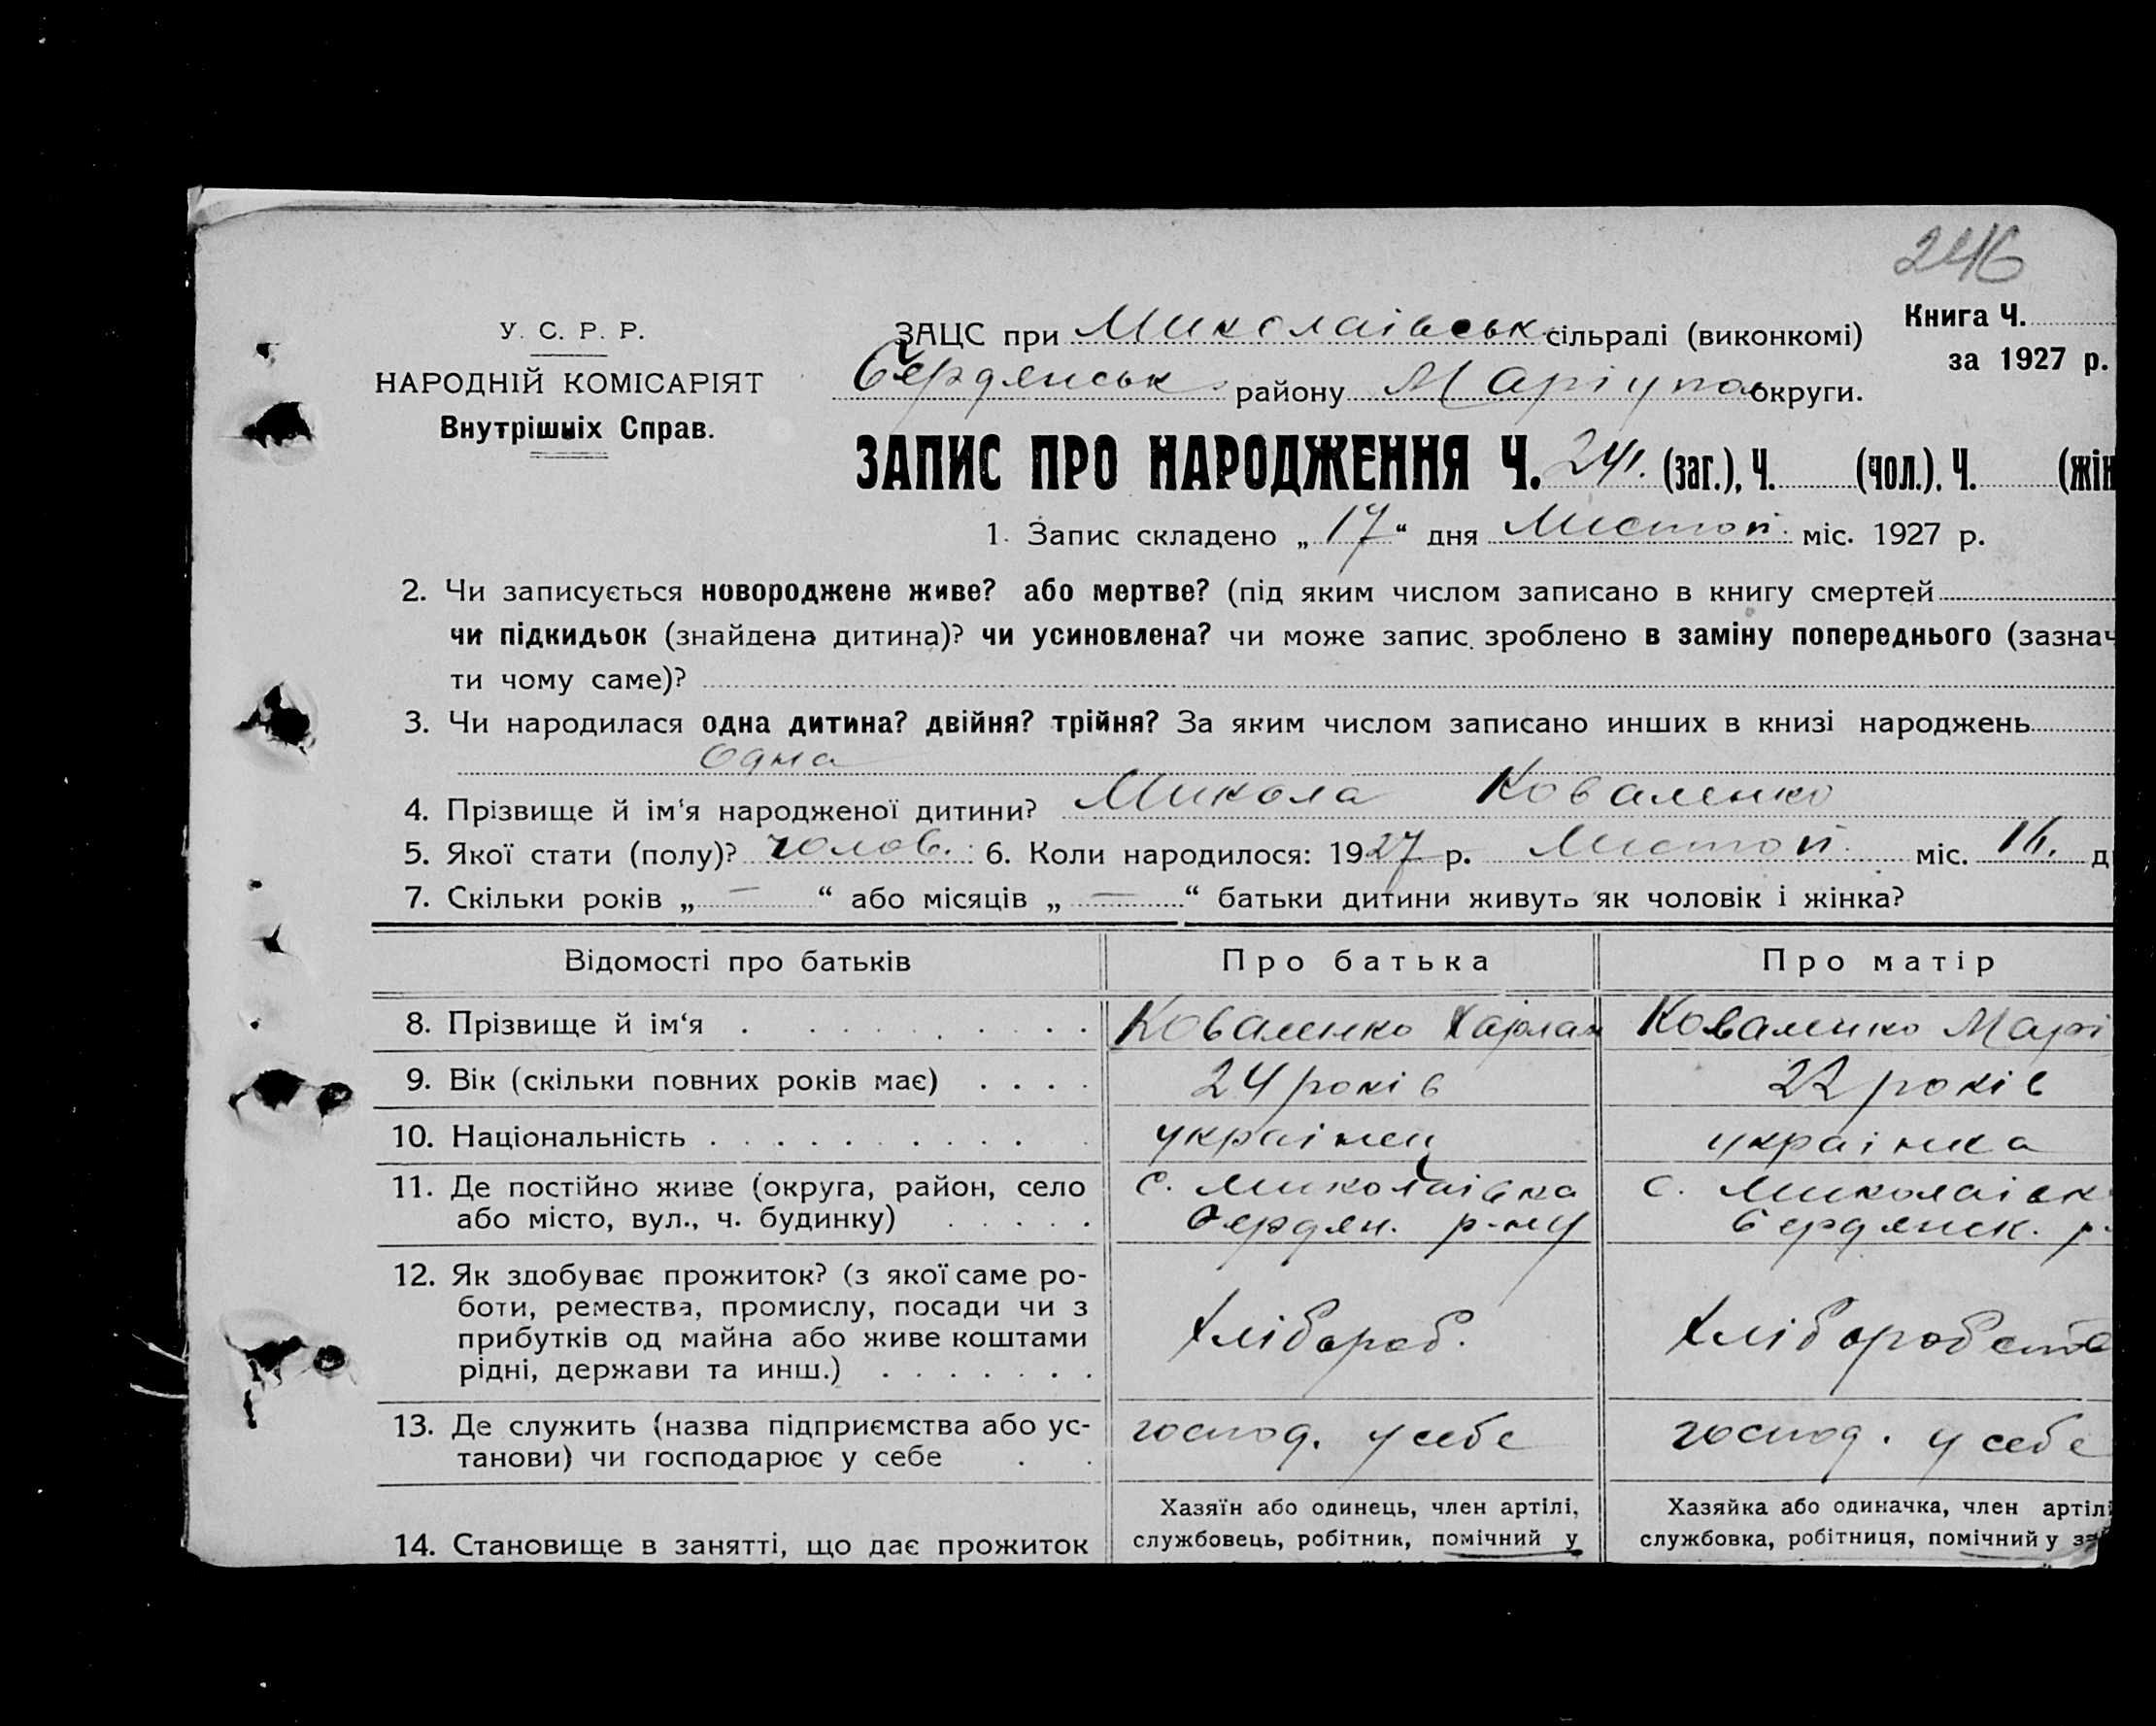 246
У. С. Р. Р.
НАРОДНІЙ КОМІСАРІЯТ
Внутрішніх Справ.
ЗАЦС при Миколаівськ сільраді (виконкомі)
Бердянськ. району Маріупол округи.
Книга Ч.
за 1927 р.
ЗАПИС ПРО НАРОДЖЕННЯ Ч. 241. (заг.), Ч. (чол.). Ч. (жін
1. Запис складено „17“ дня Листоп. міс. 1927 р.
2. Чи записується новороджене живе? або мертве? (під яким числом записано в книгу смертей
чи підкидьок (знайдена дитина)? чи усиновлена? чи може запис зроблено в заміну попереднього (зазнач
ти чому саме)?
3. Чи народилася одна дитина? двійня? трійня? За яким числом записано инших в книзі народжень
Одна
4. Прізвище й ім‘я народженої дитини? Микола Коваленко
5. Якої стати (полу)? чолов. 6. Коли народилося: 1927 р. Листоп. міс. 16. д
7. Скільки років „—“ або місяців „—“ батьки дитини живуть як чоловік і жінка?
Відомості про батьків Про батька Про матір
8. Прізвище й ім‘я Коваленко Харлам Коваленко Марі
9. Вік (скільки повних років має) 24 років 22 років
10. Національність украінец украінка
11. Де постійно живе (округа, район, село с. Миколаівка с. Миколаівк
або місто, вул., ч. будинку) Бердян. р-ну Бердянск. р-
12. Як здобуває прожиток? (з якої саме ро-
боти, ремества, промислу, посади чи з
прибутків од майна або живе коштами Хлібороб. Хліборобств
рідні, держави та инш.)
13. Де служить (назва підприємства або ус- господ. у себе господ. у себе
танови) чи господарює у себе
Хазяїн або одинець, член артілі, Хазяйка або одиначка, член артілі
14. Становище в занятті, що дає прожиток службовець, робітник, помічний у службовка, робітниця, помічний у за